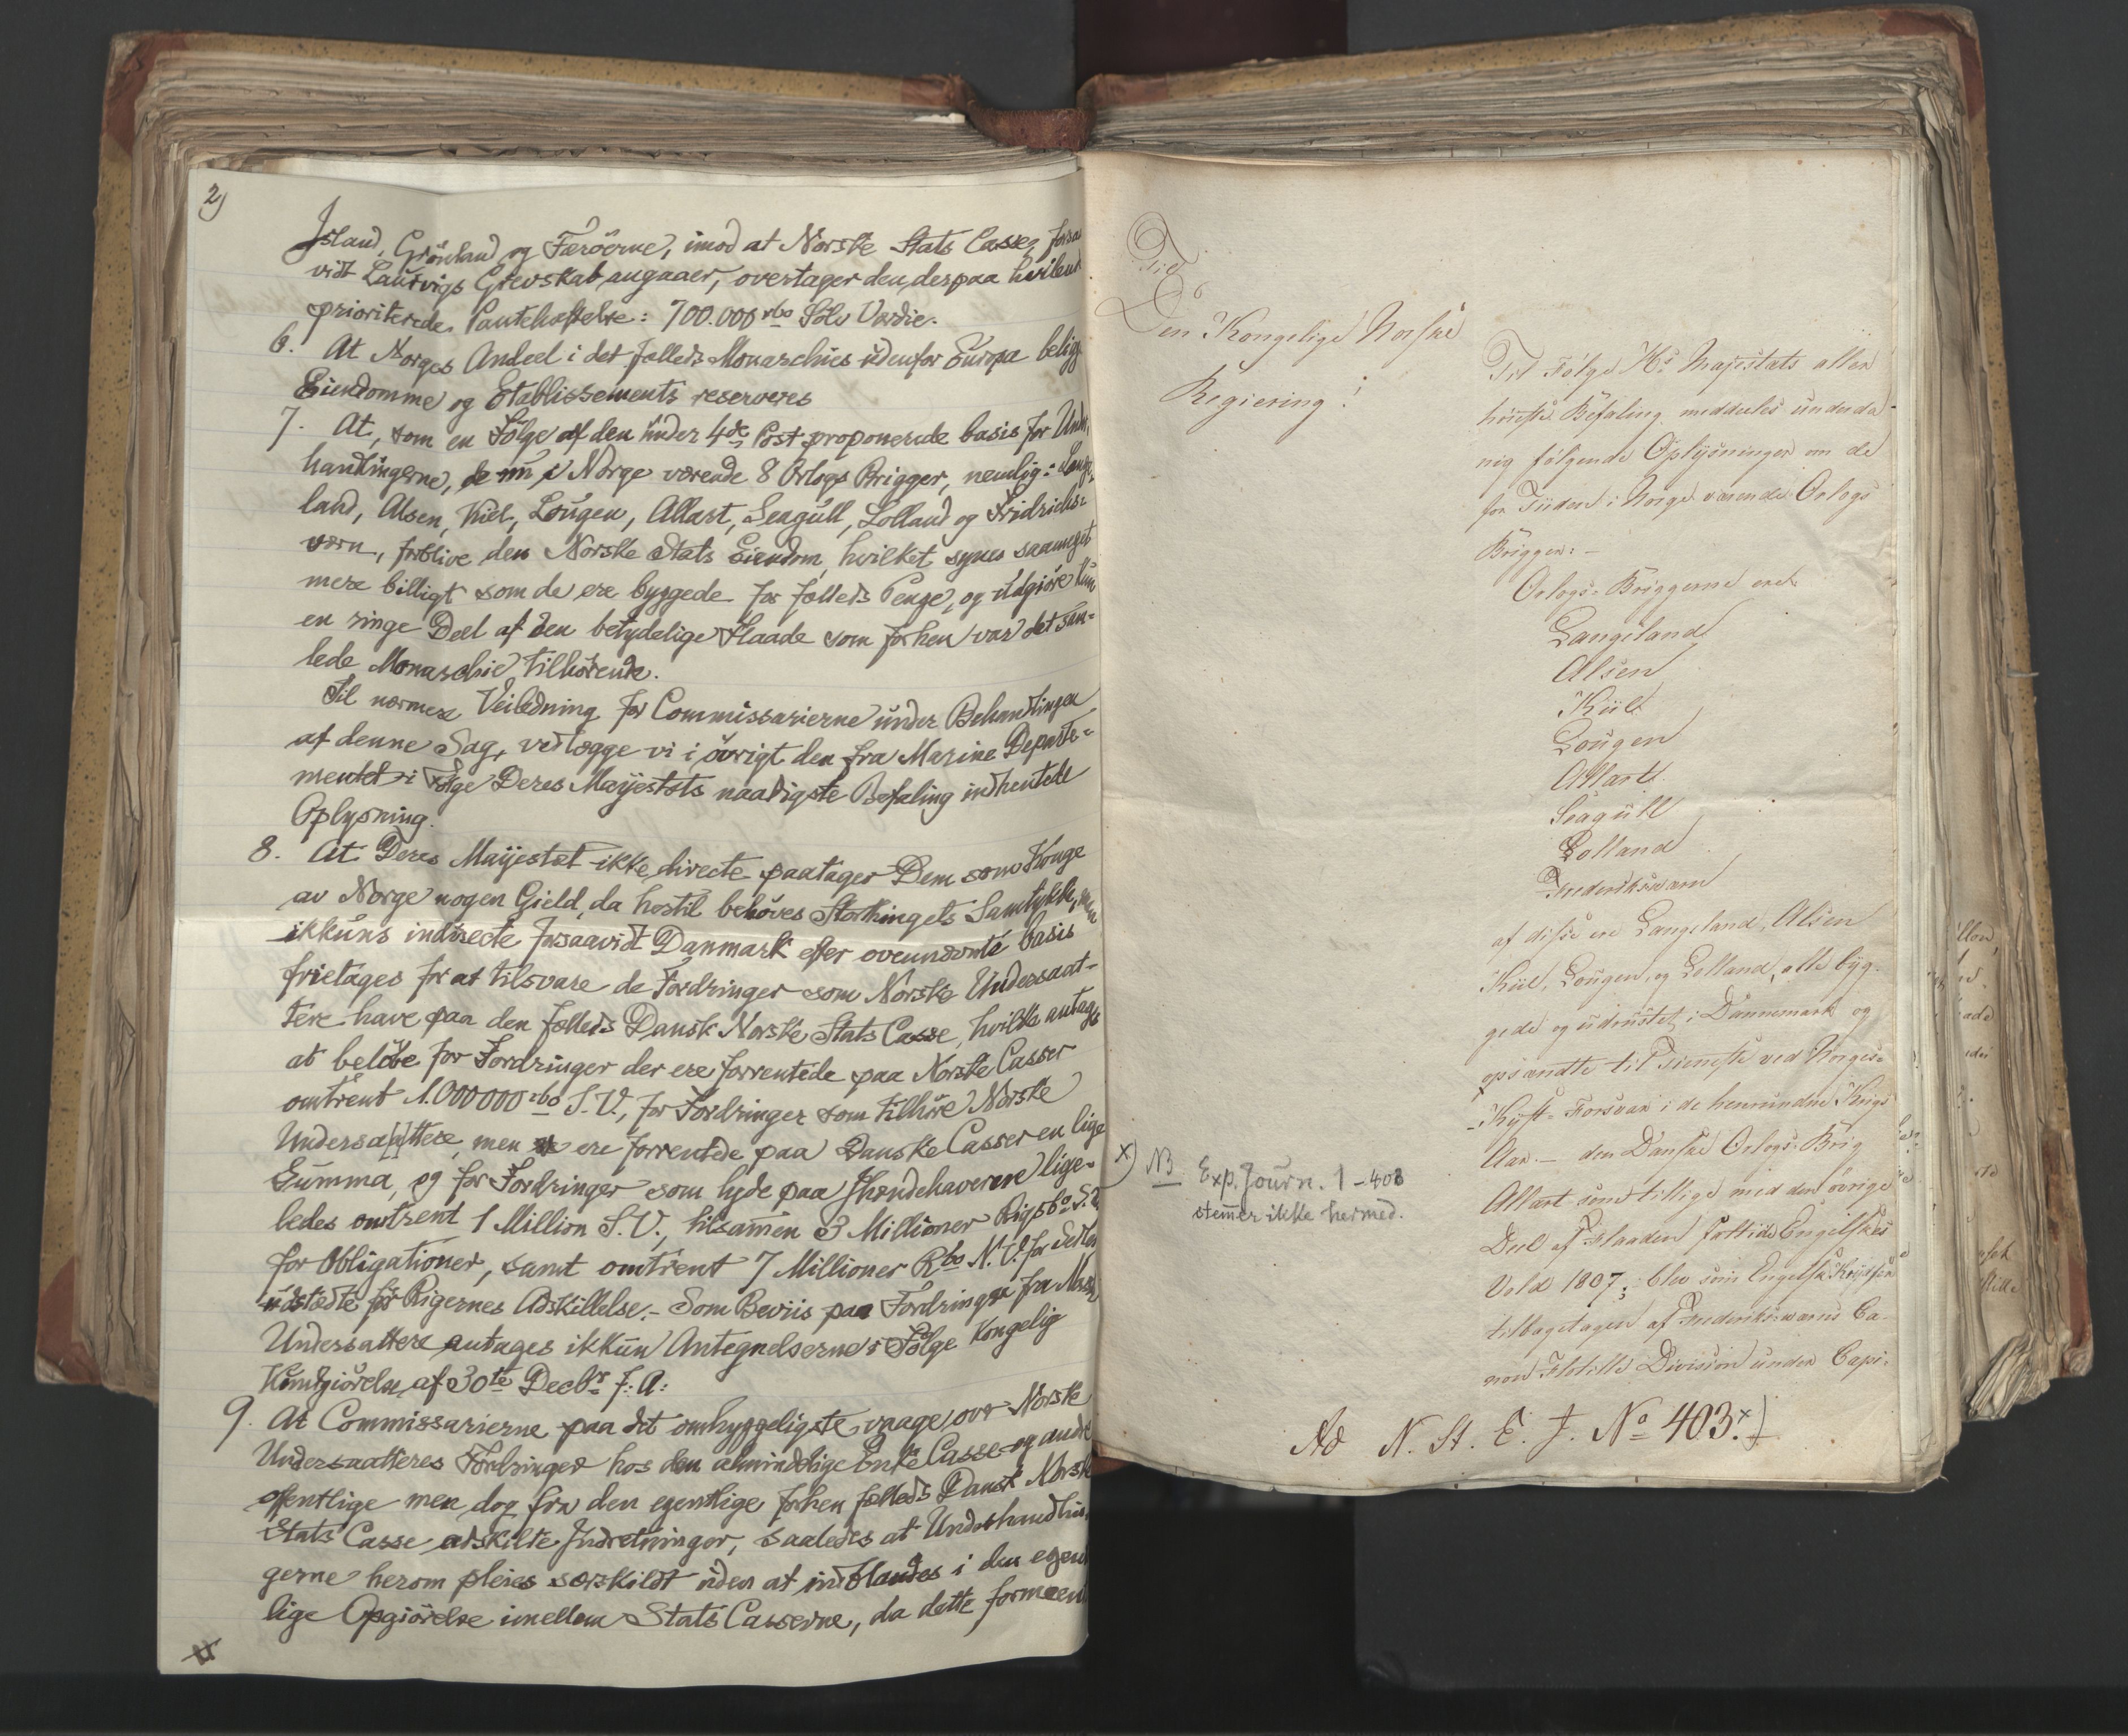 2)
Island, Grönland og Færöerne, imod at Norske Stats Casse, forsaa
vidt Laurvigs Grevskab angaaer, overtager den, derpaa hvilend
prioriterede Pantehæftelse: 700.000 rbd Sölv Værdie.
6. At Norges Andeel i det fælleds Monarchies udenfor Europa belig
Eiendomme og Etablissements reserveres
7. At, som en Fölge af den under 4de Post proponerede basis for Und
handlingerne, de nu i Norge værende 8 Orlogs Brigger, nemlig: Lange
land, Alsen, Kiel, Lougen, Allart, Seagull, Lolland og Fridrichs=
værn, forblive den Norske Stats Eiendom, hvilket synes saameget
mere billigt som de ere byggede for fælleds Penge, og udgiöre kun
en ringe Deel af den betydelige Flaade som forhen var det sam=
lede Monarchie tilhörende.
Til nærmere Veiledning for Commissarierne under Behandlingen
af denne Sag, vedlægge vi i övrigt den fra Marine Departe=
mentet i Fölge Deres Majestæts naadigste Befaling indhentede
Oplysning.
8. At Deres Majestæt ikke directe paatager Dem som Konge
av Norge nogen Gield, da hertil behöves Storthingets Samtykke, men
ikkuns indirecte forsaavidt Danmark efter ovennævnte basis
frietages for at tilsvare de Fordringer som Norske Undersaat-
tere have paa den fælleds Dansk Norske Stats Casse, hvilke antages
at belöbe for Fordringer der ere forrentede paa Norske Casser
omtrent 1.000000 rbd S.V., for Fordringer som tilhöre Norske
Undersa[a]ttere, men ere forrentede paa Danske Casser en lige
Summa, og for Fordringer som lyde paa Ihændehaveren lige-
ledes omtrent 1 Million S.V., tilsamen 3 Millioner Rigsbd S.V.
for Obligationer, samt omtrent 7 Millioner Rbd N.V. for Sedler
udstædte för Rigernes Adskillelse.- Som Beviis paa Fordringer fra Norske
Undersattere antages ikkun Antegnelserne i Fölge Kongelig
Kundgiörelse af 30te Decbr f: A:
9. At Commissarierne paa det omhyggeligste vaage over Norske
Undersaatteres Fordringer hos den almindelige Enke Casse og andre
offentlige men dog fra den egentlige forhen fælleds Dansk Norske
Stats Casse adskilte Indretninger, saaledes at Underhandlin
gerne herom pleies særskildt uden at indblandes i den egent
lige Opgiörelse imellem Stats Casserne, da dette formeent
Til
Den Kongelige Norske
Regiering!
Til Fölge Hs Majestæts aller
höieste Befaling meddeeles underda-
nig fölgende Oplysninger om de
for Tiiden i Norge værende Orlogs
Brigger: -
Orlogs-Briggerne ere
Langeland
Alsen
Kiel
Lougen
Allart
Seagull
Lolland
Frederiksværn
af disse ere Langeland, Alsen
Kiel, Lougen, og Lolland, alle byg-
gede og udrustet i Dannemark og
opsændte til Tieneste ved Norges=
Kyst-Forsvar i de henrundne Krigs
Aar. - den Danske Orlogs-Brig
Allart som tillige med den övrige
Deel af Flaaden faldt i de Engelskes
Vold 1807; blev som Engelsk Krydser
tilbagetagen af Frederiksværns Ca-
non Flotille Division under Capi-
x) NB Exp. Journ. 1 - 403
stemer ikke hermed.
Ad N. St. E. J. No 403.x)